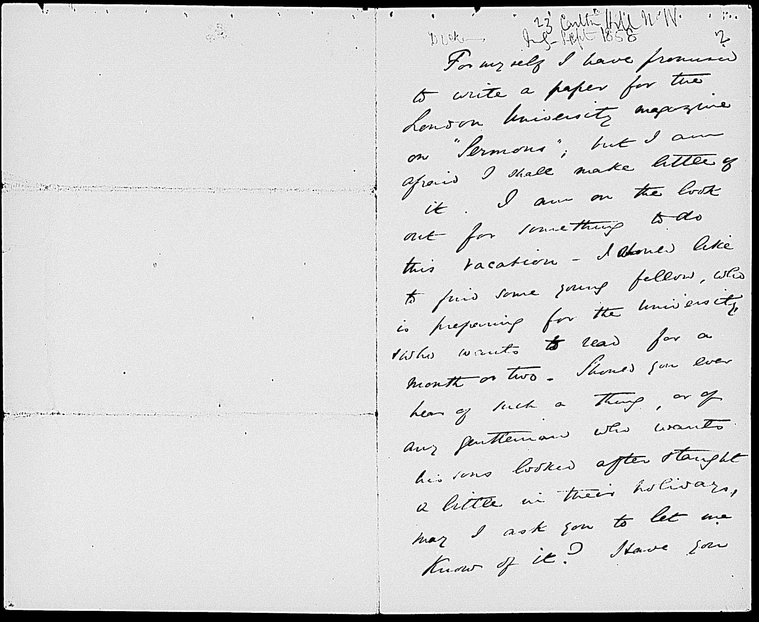 23 Carlton Hill N.W.
Sept 1858
2
For myself I have promised
to write a paper for the
London University magazine
on "Sermons"; but I am
afraid I shall make little of
it. I am on the look
out for something to do
this vacation - I should like
to find some young fellow, who
is preparing for the University,
& who wants to read for a
month or two - Should you ever
hear of such a thing, or of
any gentleman who wants
his sons looked after & taught
a little in their holidays,
may I ask you to let me
know of it? Have you